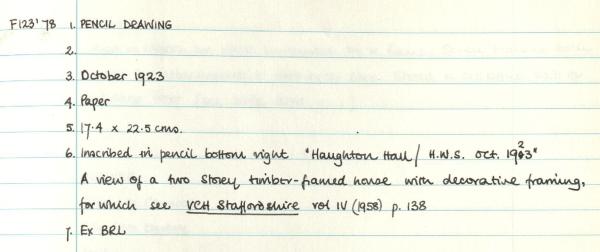 F123'78 1. PENCIL DRAWING
2.
3. October 1923
4. Paper
5. 17.4 x 22.5 cms.
6. Inscribed in pencil bottom right "Haughton Hall / H.W.S. Oct. 1923"
A view of a two storey timber-framed house with decorative framing,
for which see VCH Staffordshire vol IV (1958) p. 138
7. Ex BRL